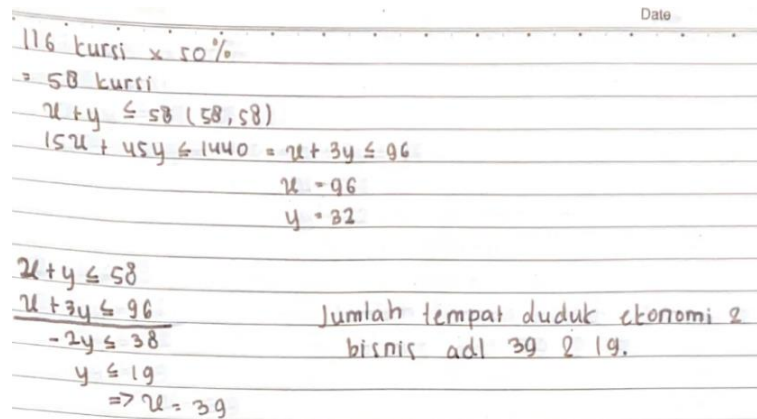 Date
116 kursi x 50%
= 58 kursi
x + y ≤ 58 (58,58)
15x + 45y ≤ 1440 = x + 3y ≤ 96
x = 96
y = 32
x + y ≤ 58
x + 3y ≤ 96
-2y ≤ 38
y ≤ 19
=> x = 39
Jumlah tempat duduk ekonomi &
bisnis adl 39 & 19.